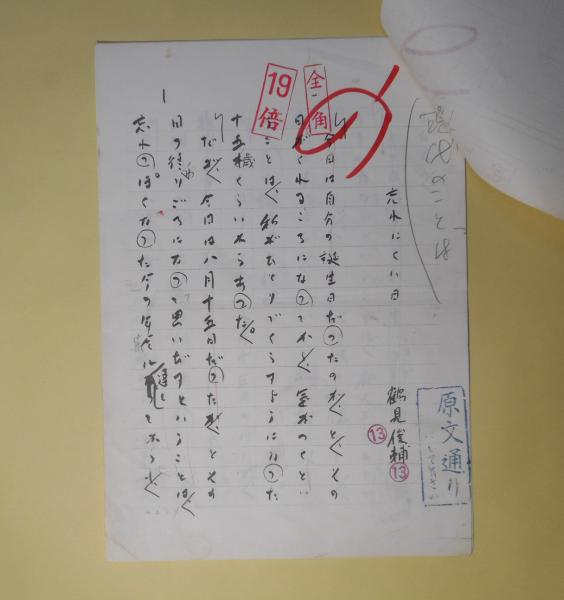 忘れにくい日
鶴見俊輔
⑬
⑬
今日は自分の誕生日だったのか、と、その
日がくれるころになってから、気がつくとい
うことは、私がひとりでくらすようになった
十五歳くらいからあった。
だが、今日は八月十五日だったか、とその
日の終りごろになって思いだすということは、
忘れっぽくなった今の年令に達しても
19倍
全角
原文通り